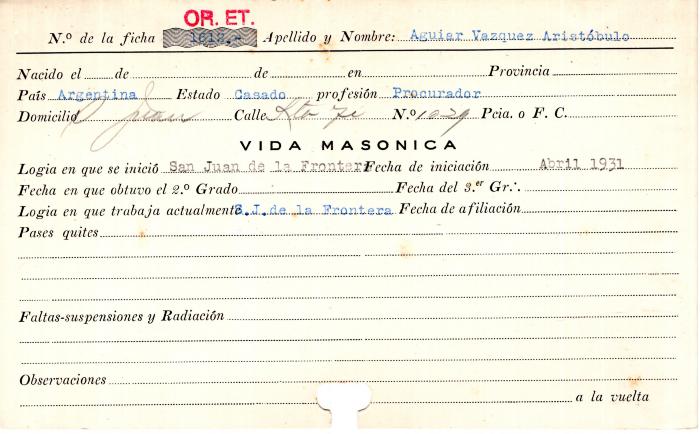 OR. ET.
N.º de la ficha 1618.- Apellido y Nombre: Aguiar Vazquez Aristóbulo
Nacido el de de en Provincia
País Argentina Estado Casado profesión Procurador
Domicilio S. Juan Calle Nº 1029 Pcia. o F. C.
VIDA MASONICA
Logia en que se inició San Juan de la Frontera Fecha de iniciación Abril 1931
Fecha en que obtuvo el 2.º Grado Fecha del 3.er Gr∴
Logia en que trabaja actualmente S.J.de la Frontera Fecha de afiliación
Pases quites
Faltas-suspensiones y Radiación
Observaciones
a la vuelta